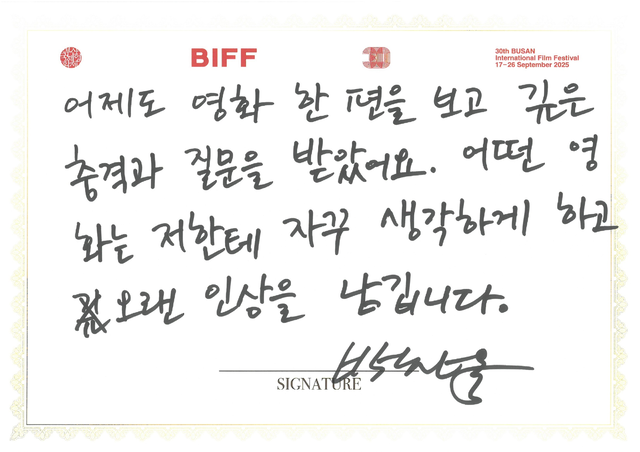 BIFF
30th BUSAN
International Film Festival
17~26 September 2025
어제도 영화 한 편을 보고 깊은
충격과 질문을 받았어요. 어떤 영
화는 저한테 자꾸 생각하게 하고
오랜 인상을 남깁니다.
SIGNATURE